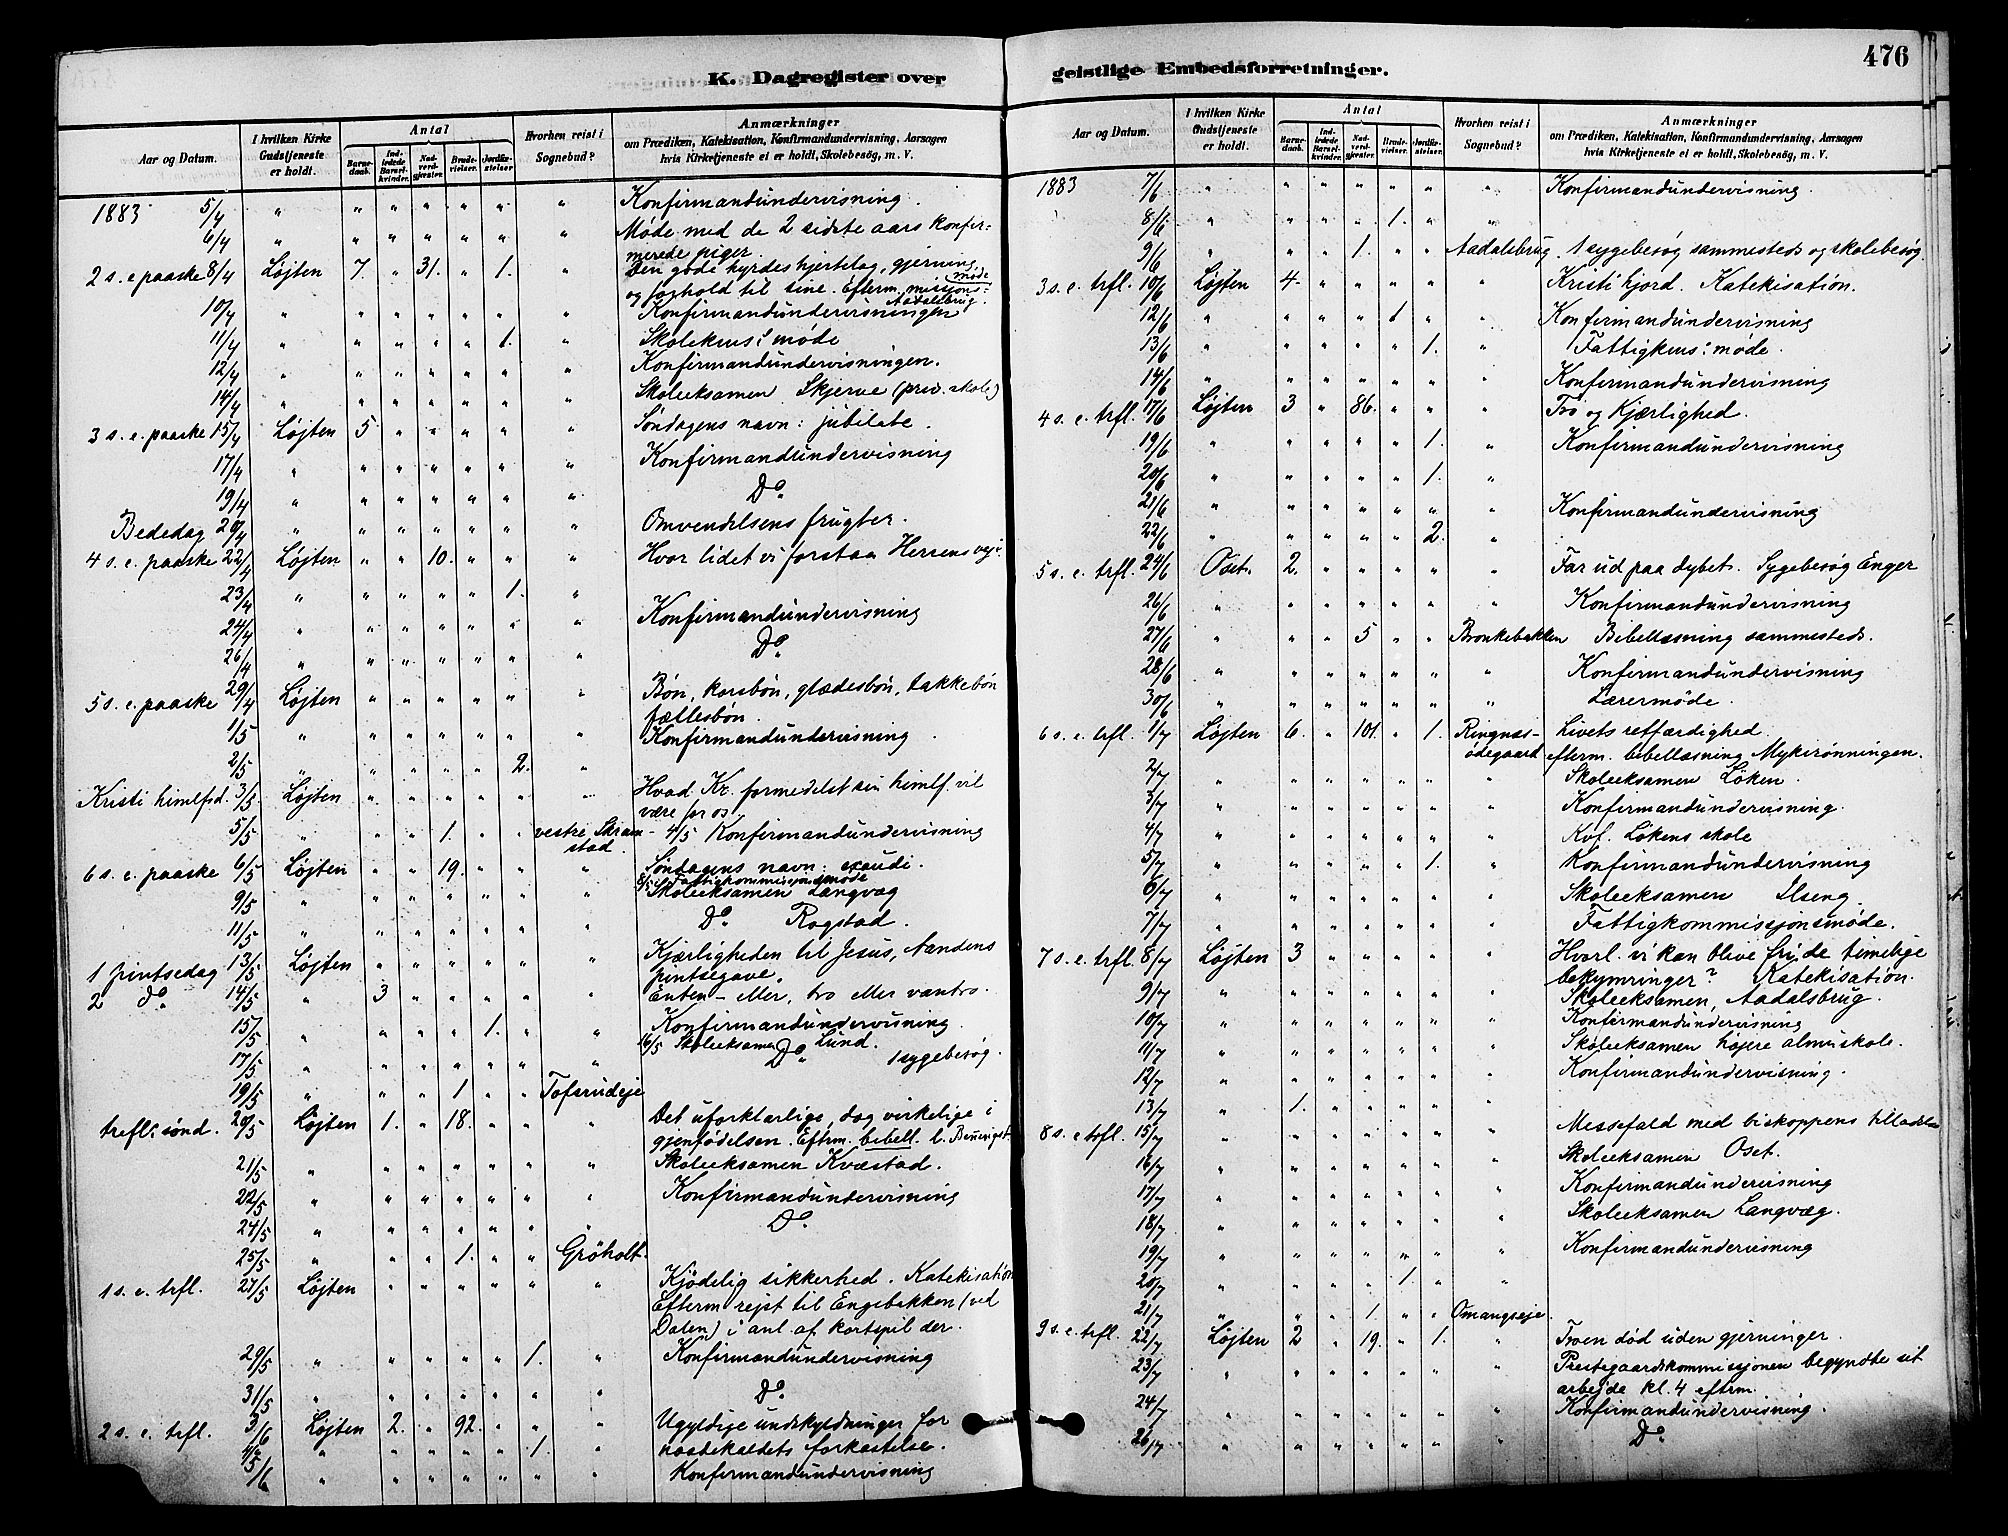 K. Dagregister over
Aar og Datum.
I hvilken Kirke Gudstjeneste er holdt.
Antal
Barnedaab.
Indledede Barselkvinder.
Nadverdgjester.
Brudevielser.
Jordfæstelser
Hvorhen reist i Sognebud?
Anmærkninger
om Prædiken, Katekisation, Konfirmandundervisning, Aarsagen
hvis Kirketjeneste ei er holdt, Skolebesög, m. V.
1883 5/4 " " " " " " " Konfirmandundervisning.
6/4 " " " " " " " Møde med de 2 sidste aars konfir-
merede piger.
2 s. e paaske 8/4 Løjten 7. " 31. " 1. " Den gode hyrdes hjertelag, gjerning
og forhold til sine. Efterm. misjons-
møde Aadalsbrug.
10/4 " " " " " " " Konfirmandundervisningen
11/4 " " " " " 1. " Skolekms: møde
12/4 " " " " " " " Konfirmandundervisningen.
14/4 " " " " " " " Skoleeksamen Skjerve (priv. skole)
3 s. e. paaske 15/4 Løjten 5 " " " " " Søndagens navn: jubilate.
17/4 " " " " " " " Konfirmandundervisning
19/4 " " " " " " " Do.
Bededag 20/4 " " " " " " " Omvendelsens frugter.
4 s. e. paaske 22/4 Løjten " " 10. " " " Hvor lidet vi forstaa Herrens veje.
23/4 " " " " " 1. "
24/4 " " " " " " " Konfirmandundervisning
26/4 " " " " " " " Do.
5 s. e. paaske 29/4 Løjten " " " " " " Bøn, korsbøn, glædesbøn, takkebøn
fællesbøn.
1/5 " " " " " " " Konfirmandundervisning
2/5 " " " " " 2. "
Kristi himlfrd. 3/5 Løjten " " " " " " Hvad Kr. formedelst sin himlf. vil
være for os.
5/5 " " " 1. " " vestre Skram-
stad. 4/5 Konfirmandundervisning
6 s. e. paaske 6/5 Løjten " " 19. " " " Søndagens navn: exaudi.
8/5: Fattigkommissjonsmøde
9/5 " " " " " " " Skoleeksamen Langvæg
11/5 " " " " " " " Do. Rogstad.
1 pintsedag 13/5 Løjten " " " " " " Kjærligheden til Jesus, Aandens
pintsegave.
2 do. 14/5 " 3 " " " " " Enten – eller, tro eller vantro.
15/5 " " " " " 1. " Konfirmandundervisning
16/5 Skoleeksamen Lund.
17/5 " " " " " " " Do. 1 sygebesøg.
19/5 " " " 1 " " Tofsrudeje
trefl: sønd. 20/5 Løjten 1. " 18. " " " Det uforklarlige, dog virkelige i
gjenfødelsen. Eftrm. bebell.
21/5 " " " " " " " Skoleeksamen Kvæstad.
22/5 " " " " " " " Konfirmandundervisning
24/5 " " " " " " " Do.
25/5 " " " 1. " " Grøholt.
1 s. e. trfl. 27/5 Løjten " " " " " " Kjødelig sikkerhed. Katekisation
Efterm rejst til Engebakken (ved
Dalen) i anl. af kortspil der.
29/5 " " " " " 1. " Konfirmandundervisning
31/5 " " " " " " " Do.
2 s. e. trfl. 3/6 Løjten 2. " 92. " " " Ugyldige undskyldninger for
4/6 " " " " " 1. " naadekaldets forkastelse.
5/6 " " " " " " " Konfirmandundervisning
geistlige Embedsforretninger.
476
Aar og Datum.
I hvilken Kirke Gudstjeneste er holdt.
Antal
Barnedaab.
Indledede Barselkvinder.
Nadverdgjester.
Brudevielser.
Jordfæstelser.
Hvorhen reist i Sognebud?
Anmærkninger
om Prædiken, Katekisation, Konfirmandundervisning, Aarsagen
hvis Kirketjeneste ei er holdt, Skolebesög, m. V.
1883 7/6 " " " " " " " Konfirmandundervisning.
8/6 " " " " 1. " "
9/6 " " " 1. " " Aadalsbrug. 1 sygebesøg sammesteds og skolebesøg
3 s. e. trfl. 10/6 Løjten 4. " " " " " Kristi hjord. Katekisation.
12/6 " " " " 1 " " Konfirmandundervisning
13/6 " " " " " 1. " Fattigkms: møde.
14/6 " " " " " " " Konfirmandundervisning
4 s. e. trfl. 17/6 Løjten 3 " 86. " " " Tro og Kjærlighed.
19/6 " " " " " 1. " Konfirmandundervisning
20/6 " " " " " 1. "
21/6 " " " " " " " Konfirmandundervisning
22/6 " " " " " 2. "
5 s. e. trfl. 24/6 Oset. 2. " " " " " Far ud paa dybet. Sygebesøg Enger
26/6 " " " " " " " Konfirmandundervisning
27/6 " " " 5 " " Bronkebakken Bibellæsning sammesteds.
28/6 " " " " " " " Konfirmandundervisning
30/6 " " " " " " " Lærermøde.
6 s. e. trfl. 1/7 Løjten 6. " 101. " 1. Ringnæs-
ødegaard Livets retfærdighed.
efterm. bibellæsning Mykirønningen.
2/7 " " " " " " " Skoleeksamen Løken.
3/7 " " " " " " " Konfirmandundervisning.
4/7 " " " " " " " Løkens skole
5/7 " " " " " 1. " Konfirmandundervisning
6/7 " " " " " " " Skoleeksamen Ilseng.
7/7 " " " " " " " Fattigkommissjonsmøde.
7 s. e. trfl. 8/7 Løjten 3 " " " " " Hvorl. vi kan blive fri de timelige
bekymringer? Katekisation.
9/7 " " " " " " " Skoleeksamen, Aadalsbrug.
10/7 " " " " " " " Konfirmandundervisning
11/7 " " " " " " " Skoleeksamen højere almuskole.
12/7 " " " " " " " Konfirmandundervisning.
13/7 " 1. " " " " "
8 s. e trfl. 15/7 " " " " " " " Messefald med biskoppens tilladelse
16/7 " " " " " " " Skoleeksamen Oset.
17/7 " " " " " " " Konfirmandundervisning
18/7 " " " " " " " Skoleeksamen Langvæg.
19/7 " " " " " " " Konfirmandundervisning
20/7 " " " " 1. " "
21/7 " " " 1. " " Omangseje.
9 s. e trfl. 22/7 Løjten 2 " 19. " 1. " Troen død uden gjerninger.
23/7 " " " " " " " Prestegaardskommissjonen begyndte sit
arbejde kl. 4 efterm.
24/7 " " " " " " " Konfirmandundervisning.
26/7 " " " " " " " Do.